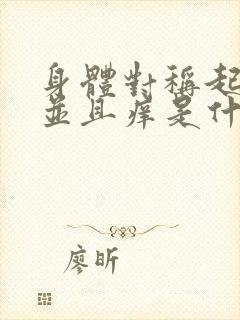 身體對稱起
並且痒是什
廖昕